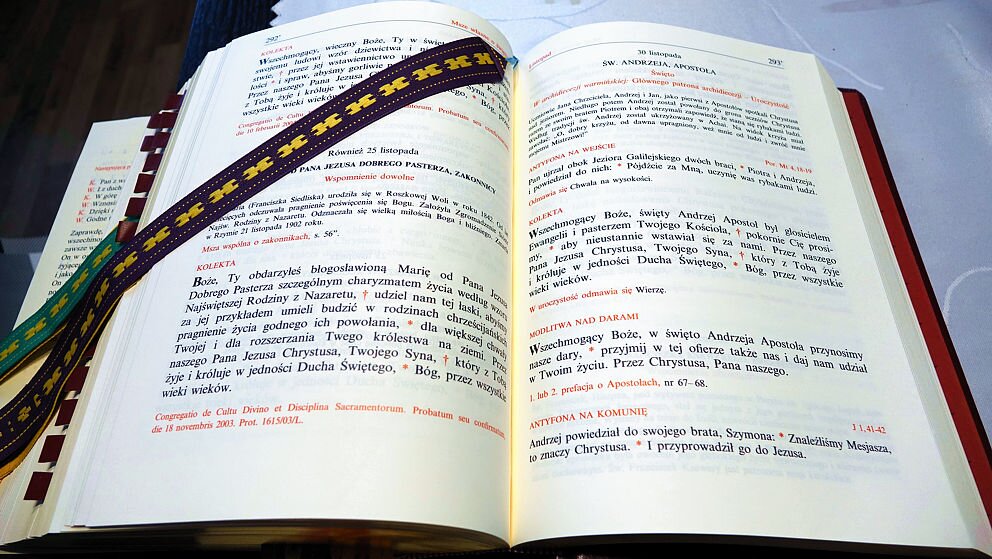 292'
Msze własne o
KOLEKTA
Wszechmogący, wieczny Boże, Ty w święt
swojemu ludowi wzór dziewictwa i
stwie, † przez jej wstawiennictwo
łości * i spraw, abyśmy gorliwie
Przez naszego Pana Jezusa
z Tobą żyje i króluje w * Bóg, przez
wszystkie wieki wieków.
Congregatio de Cultu Probatum seu confirmatum
die 10 februarii
Również 25 listopada
PANA JEZUSA DOBREGO PASTERZA, ZAKONNICY
Wspomnienie dowolne
(Franciszka Siedliska) urodziła się w Roszkowej Woli w roku 1842. Od
odczuwała pragnienie poświęcenia się Bogu. Założyła Zgromadzenie
Najśw. Rodziny z Nazaretu. Odznaczała się wielką miłością Boga i bliźniego. Zmarła
w Rzymie 21 listopada 1902 roku.
Msza wspólna o zakonnikach, s. 56".
KOLEKTA
Boże, Ty obdarzyłeś błogosławioną Marię od Pana Jezusa
Dobrego Pasterza szczególnym charyzmatem życia według wzoru
Najświętszej Rodziny z Nazaretu, † udziel nam tej łaski, abyśmy
za jej przykładem umieli budzić w rodzinach chrześcijańskich
pragnienie życia godnego ich powołania, * dla większej chwały
Twojej i dla rozszerzania Twego królestwa na ziemi. Przez
naszego Pana Jezusa Chrystusa, Twojego Syna, † który z Tobą
żyje i króluje w jedności Ducha Świętego, * Bóg, przez wszystkie
wieki wieków.
Congregatio de Cultu Divino et Disciplina Sacramentorum. Probatum seu confirmatum,
die 18 novembris 2003. Prot. 1615/03/L.
K. Pan z w
W. I z duch
K. W górę
W. Wznosi
K. Dzięki
W. Godne
Zaprawdę,
Listopad
30 listopada
293'
ŚW. ANDRZEJA, APOSTOŁA
Święto
W archidiecezji warmińskiej: Głównego patrona archidiecezji - Uroczystość
Uczniowie Jana Chrzciciela, Andrzej i Jan, jako pierwsi z Apostołów spotkali Chrystusa
nad Jordanem. Niedługo potem Andrzej został powołany do grona uczniów Chrystusa
razem ze swoim bratem Piotrem i obaj otrzymali zapowiedź, że staną się rybakami ludzi.
Według tradycji św. Andrzej został ukrzyżowany w Achai. Na widok krzyża miał
zawołać: „O, dobry krzyżu, od dawna upragniony, weź mnie od ludzi i zwróć mnie
mojemu Mistrzowi!”
ANTYFONA NA WEJŚCIE
Por. Mt 4,18-19
Pan ujrzał obok Jeziora Galilejskiego dwóch braci, * Piotra i Andrzeja,
i powiedział do nich: * Pójdźcie za Mną, uczynię was rybakami ludzi.
Odmawia się Chwała na wysokości.
KOLEKTA
Wszechmogący Boże, święty Andrzej Apostoł był głosicielem
Ewangelii i pasterzem Twojego Kościoła, † pokornie Cię prosi-
my, * aby nieustannie wstawiał się za nami. Przez naszego
Pana Jezusa Chrystusa, Twojego Syna, † który z Tobą żyje
i króluje w jedności Ducha Świętego, * Bóg, przez wszystkie
wieki wieków.
W uroczystość odmawia się Wierzę.
MODLITWA NAD DARAMI
Wszechmogący Boże, w święto Andrzeja Apostoła przynosimy
nasze dary, * przyjmij w tej ofierze także nas i daj nam udział
w Twoim życiu. Przez Chrystusa, Pana naszego.
1. lub 2. prefacja o Apostołach, nr 67–68.
ANTYFONA NA KOMUNIĘ
J 1,41-42
Andrzej powiedział do swojego brata, Szymona: * Znaleźliśmy Mesjasza,
to znaczy Chrystusa. * I przyprowadził go do Jezusa.